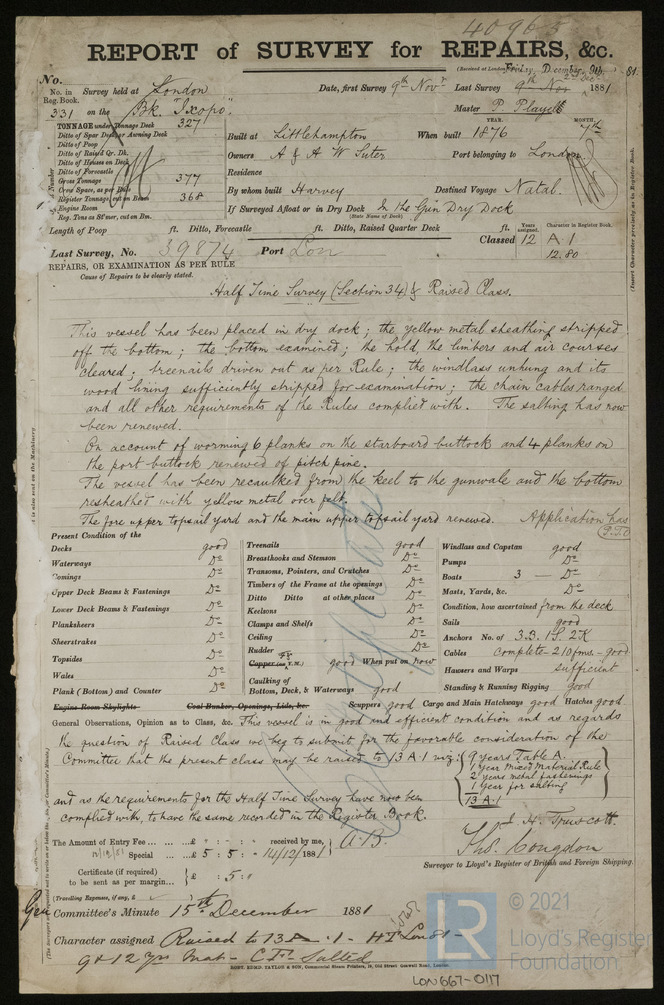 40965
REPORT of SURVEY for REPAIRS, &c.
(Received at London Friday, December, 9th. 81.
No.
No. in Reg. Book. Survey held at London Date, first Survey 9th Novr Last Survey 1881
331 on the Bk. "Ixopo" Master P. Playell
TONNAGE under Tonnage Deck 327
Ditto of Spar Deck or Awning Deck
Ditto of Poop
Ditto of Raised Qr. Dk.
Ditto of Houses on Deck
Ditto of Forecastle
Gross Tonnage 377
Crew Space, as per Rule
Register Tonnage, cut on Beam 368
Engine Room
Reg. Tons as St'mer, cut on Bm.
Built at Littlehampton When built YEAR. 1876 MONTH. 7th
Owners A & A W Suter Port belonging to London
Residence
By whom built Harvey Destined Voyage Natal.
If Surveyed Afloat or in Dry Dock In the Gun Dry Dock
(State Name of Dock)
Length of Poop ft. Ditto, Forecastle ft. Ditto, Raised Quarter Deck ft.
Years assigned. Character in Register Book.
Last Survey, No. 39874 Port Lon Classed 12 A 1
12.80
(Insert Character precisely as in Register Book.
REPAIRS, OR EXAMINATION AS PER RULE
Cause of Repairs to be clearly stated.
Half Time Survey (Section 34) & Raised Class.
This vessel has been placed in dry dock; the yellow metal sheathing stripped
off the bottom; the bottom examined; the hold, the limbers and air courses
cleared; treenails driven out as per Rule; the windlass unhung and its
wood lining sufficiently stripped for examination; the chain cables ranged
and all other requirements of the Rules complied with. The salting has now
been renewed.
On account of worming 6 planks on the starboard buttock and 4 planks on
the port buttock renewed of pitch pine.
The vessel has been recaulked from the keel to the gunwale and the bottom
resheathed with yellow metal over felt.
The fore upper topsail yard and the main upper topsail yard renewed. Application has
(P.T.O
Present Condition of the
Decks good
Waterways Do
Comings Do
Upper Deck Beams & Fastenings Do
Lower Deck Beams & Fastenings Do
Planksheers Do
Sheerstrakes Do
Topsides Do
Wales Do
Plank (Bottom) and Counter Do
Engine Room Skylights
Treenails good
Breasthooks and Stemson Do
Transoms, Pointers, and Crutches Do
Timbers of the Frame at the openings Do
Ditto Ditto at other places Do
Keelsons Do
Clamps and Shelfs Do
Ceiling Do
Rudder Do
Copper (or Y.M.) good When put on now
Caulking of
Bottom, Deck, & Waterways good
Coal Bunker, Openings, Lids, &c.
Windlass and Capstan good
Pumps Do
Boats 3 — Do
Masts, Yards, &c. Do
Condition, how ascertained from the deck
Sails good
Anchors No. of 3.B. 1S. 2K
Cables complete - 210 fms. - good
Hawsers and Warps sufficient
Standing & Running Rigging good
Scuppers good Cargo and Main Hatchways good Hatches good
General Observations, Opinion as to Class, &c. This vessel is in good and efficient condition and as regards
the question of Raised Class we beg to submit for the favorable consideration of the
Committee that the present class may be raised to 13 A.1 viz:
9 years Table A.
1 year Mixed Material Rule
2 years metal fastenings
1 year for salting
13 A.1
and as the requirements for the Half Time Survey have now been
complied with, to have the same recorded in the Register Book.
The Amount of Entry Fee ... £ : : received by me,
Special ... £ 5 : 5 : 14/12/1881 A.B.
Certificate (if required)
to be sent as per margin... £ : 5 :
(Travelling Expenses, if any, £
J. H. Truscott
Thos. Congdon
Surveyor to Lloyd's Register of British and Foreign Shipping.
Committee's Minute 15th December 1881
Character assigned Raised to 13 A.1 - HT Lon 81 -
9 & 12 yrs Mat - C.F. Salted
LR
© 2021
Lloyd's Register
Foundation
LON667-0117